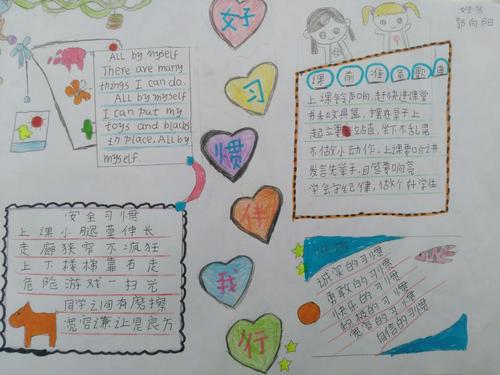 姓名
郭向阳
好
习
惯
伴
我
行
All by myself
There are many
things I can do.
All by myself
I can put my
toys and blocks
in place. All by
myself.
课前准备歌曲
上课铃声响,赶快进课堂
书和文具盒,摆在桌子上
起立要站直,坐下不乱晃
不做小动作,上课要
发言先举手,回答要响亮
学会守纪律,做个好学生
安全习惯
上课小腿莫伸长
走廊狭窄不疯狂
上下楼梯靠右走
危险游戏一扫光
同学之间有磨擦
宽容谦让是良方
诚实的习惯
勇敢的习惯
快乐的习惯
积极的习惯
宽容的习惯
自信的习惯